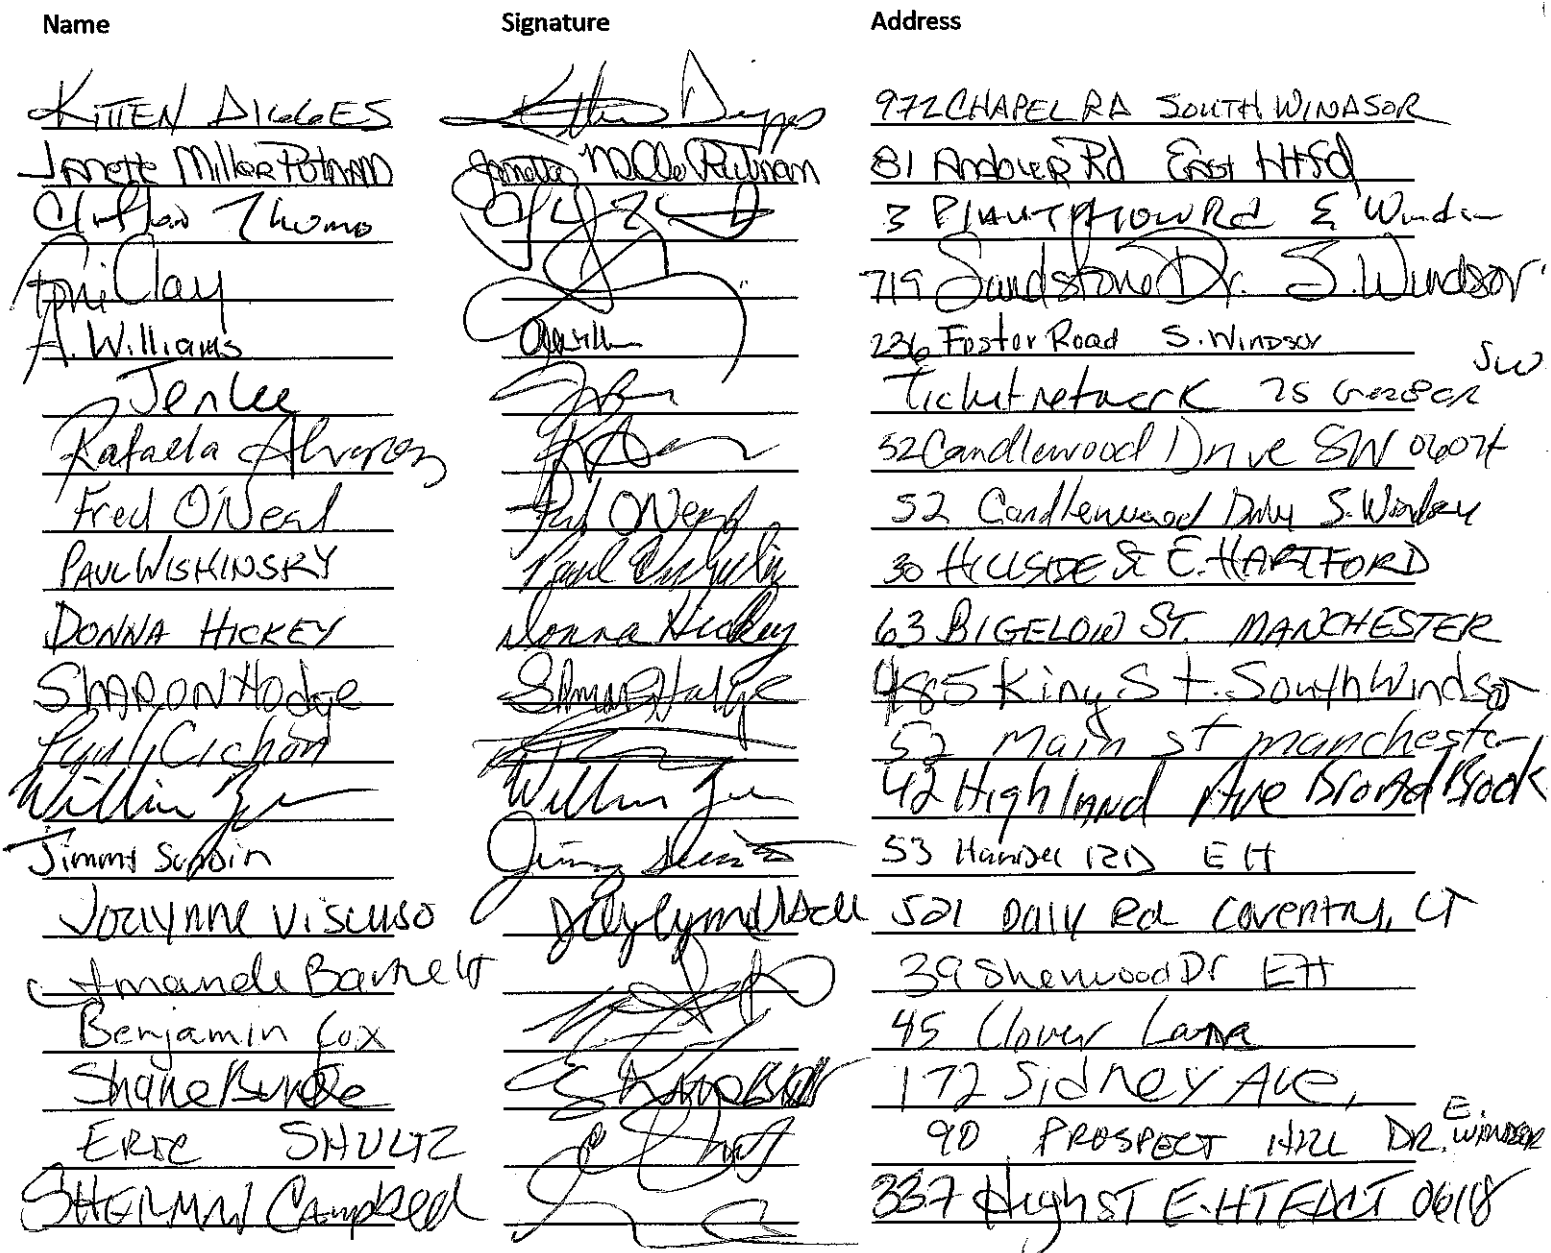 Name Signature Address
KITTEN DIGGES Digges 972 CHAPEL RD SOUTH WINDSOR
Janette Miller Putnam Janette Miller Putnam 81 Andover Rd East Htfd
Clifton Thomo 3 Rd E Windsor
Toni Clay 719 Sandstone Dr. S. Windsor
A. Williams 236 Foster Road S. Windsor
Jen Lee Ticketnetwork 75 Gerber SW
Rafaela Alvarez 52 Candlewood Drive SW 06074
Fred O'Neal Fred O'Neal 52 Candlewood S. Windsor
PAUL WISHINSKY Paul 30 HILLSIDE St E. HARTFORD
DONNA HICKEY Donna Hickey 63 BIGELOW ST. MANCHESTER
SHARON Hodge Sharon Hodge 485 King St. South Windsor
Cichon 52 Main st manchester
William William 42 Highland Ave Broad Brook
Jimmy Jimmy 53 RD EH
Joelynne Viscuso 521 Daly Rd Coventry, CT
Amanda Barnett 39 Sherwood Dr EH
Benjamin Cox 45 Clover Lane
Shane Burke 172 Sidney Ave,
ERIC SHULTZ 90 PROSPECT HILL DR. E. WINDSOR
SHERMAN Campbell 337 High ST E. HTFD CT 06118